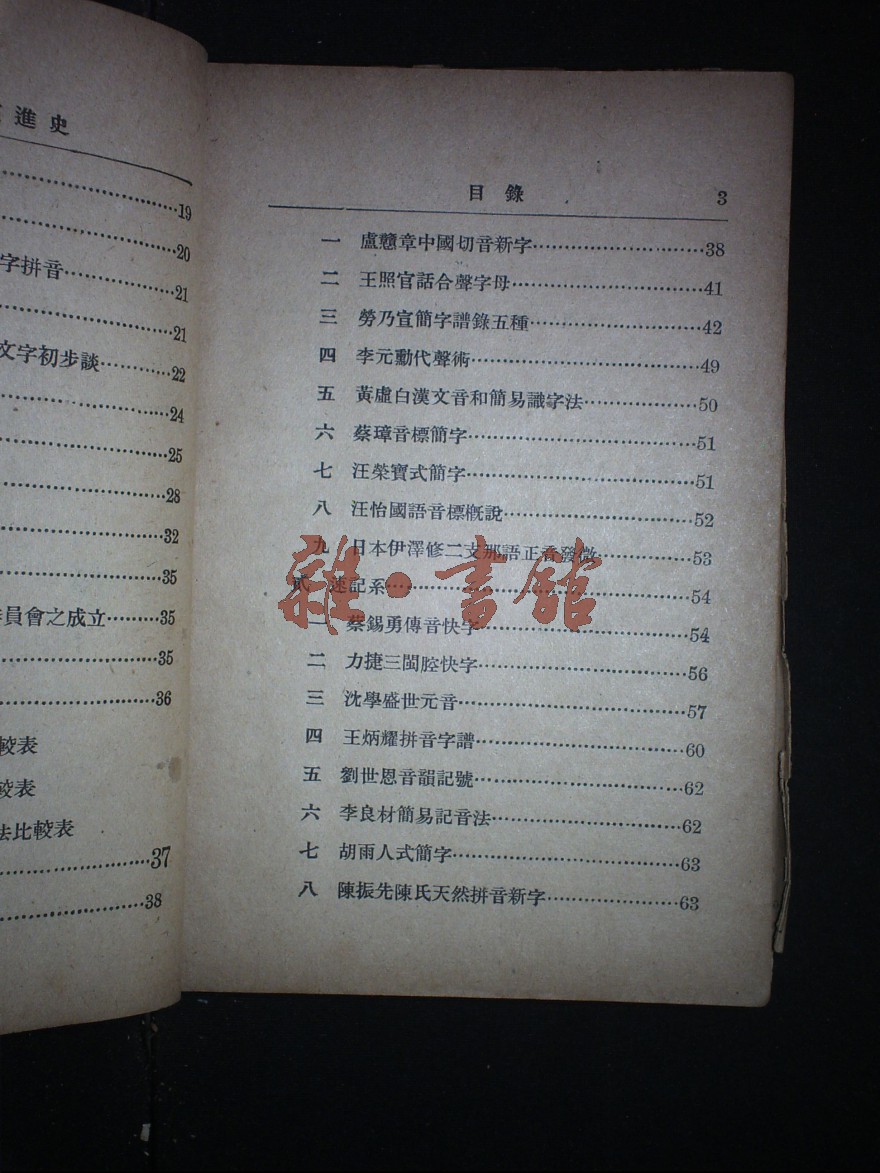 進史
19
20
字拼音21
21
文字初步談22
24
25
28
32
35
員會之成立35
35
36
較表
較表
法比較表
37
38
目錄 3
一 盧戇章中國切音新字38
二 王照官話合聲字母41
三 勞乃宣簡字譜錄五種42
四 李元勳代聲術49
五 黃虛白漢文音和簡易識字法50
六 蔡璋音標簡字51
七 汪榮寶式簡字51
八 汪怡國語音標概說52
九 日本伊澤修二支那語正音發微53
貳 速記系54
一 蔡錫勇傳音快字54
二 力捷三閩腔快字56
三 沈學盛世元音57
四 王炳耀拼音字譜60
五 劉世恩音韻記號62
六 李良材簡易記音法62
七 胡雨人式簡字63
八 陳振先陳氏天然拼音新字63
雜·書館